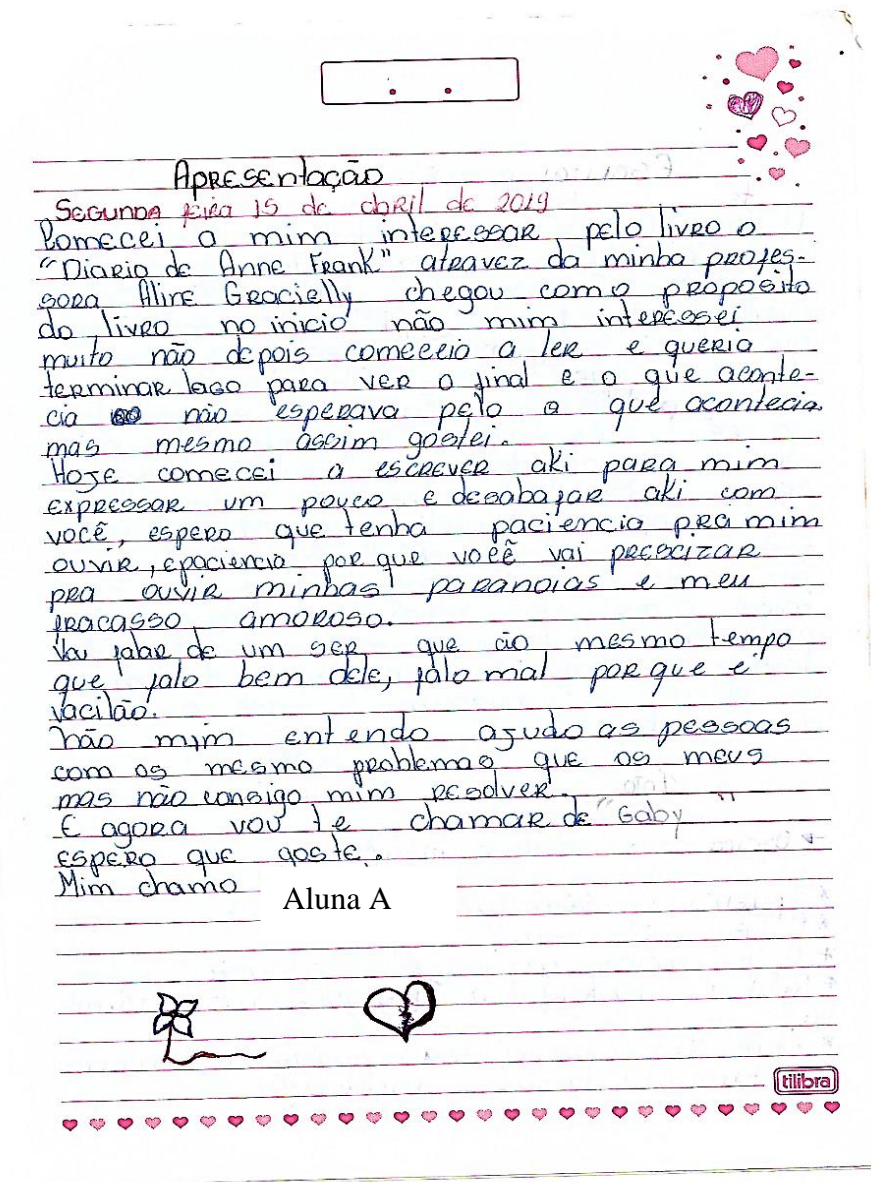 Apresentação
Segunda feira 15 de abril de 2019
Comecei a mim interessar pelo livro o
"Diario de Anne Frank" atravez da minha profes-
sora Aline Gracielly chegou com o proposito
do livro no inicio não mim interessei
muito não depois comeceio a ler e queria
terminar logo para ver o final e o que aconte-
cia não esperava pelo o que acontecia
mas mesmo assim gostei.
Hoje comecei a escrever aki para mim
expressar um pouco e desabafar aki com
você, espero que tenha paciencia pra mim
ouvir, epaciencia por que você vai prescizar
pra ouvir minhas paranoias e meu
fracasso amoroso.
Vou falar de um ser que ao mesmo tempo
que falo bem dele, falo mal por que e
vacilão.
não mim entendo ajudo as pessoas
com os mesmo problemas que os meus
mas não consigo mim resolver.
E agora vou te chamar de "Gaby"
espero que goste.
Mim chamo Aluna A
tilibra